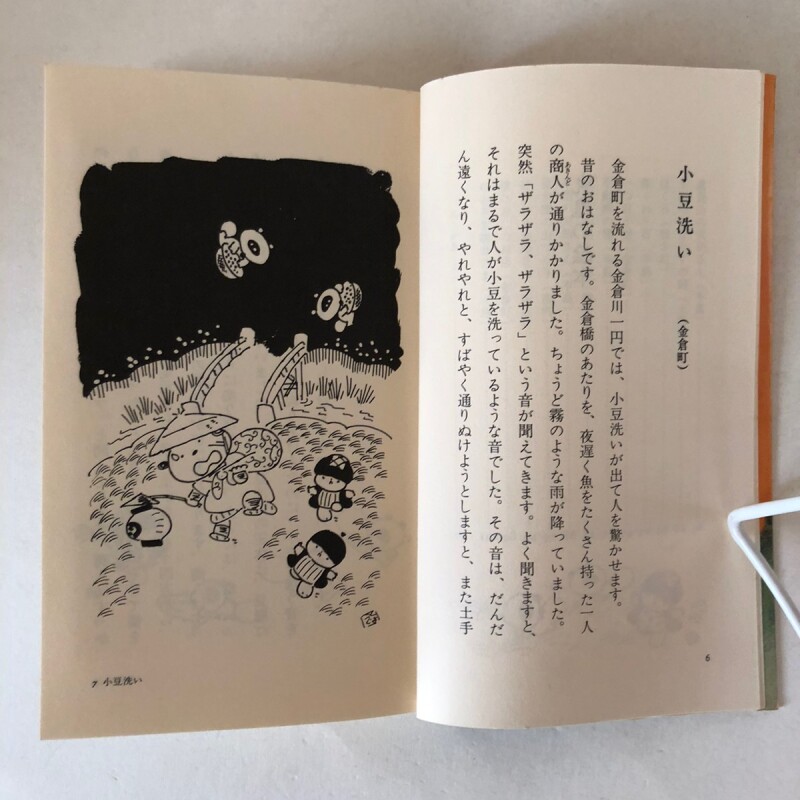 小豆洗い
(金倉町)
金倉町を流れる金倉川一円では、小豆洗いが出て人を驚かせます。
昔のおはなしです。金倉橋のあたりを、夜遅く魚をたくさん持った一人
の商人が通りかかりました。ちょうど霧のような雨が降っていました。
あきんど
突然「ザラザラ、ザラザラ」という音が聞えてきます。よく聞きますと、
それはまるで人が小豆を洗っているような音でした。その音は、だんだ
ん遠くなり、やれやれと、すばやく通りぬけようとしますと、また土手
6
7 小豆洗い